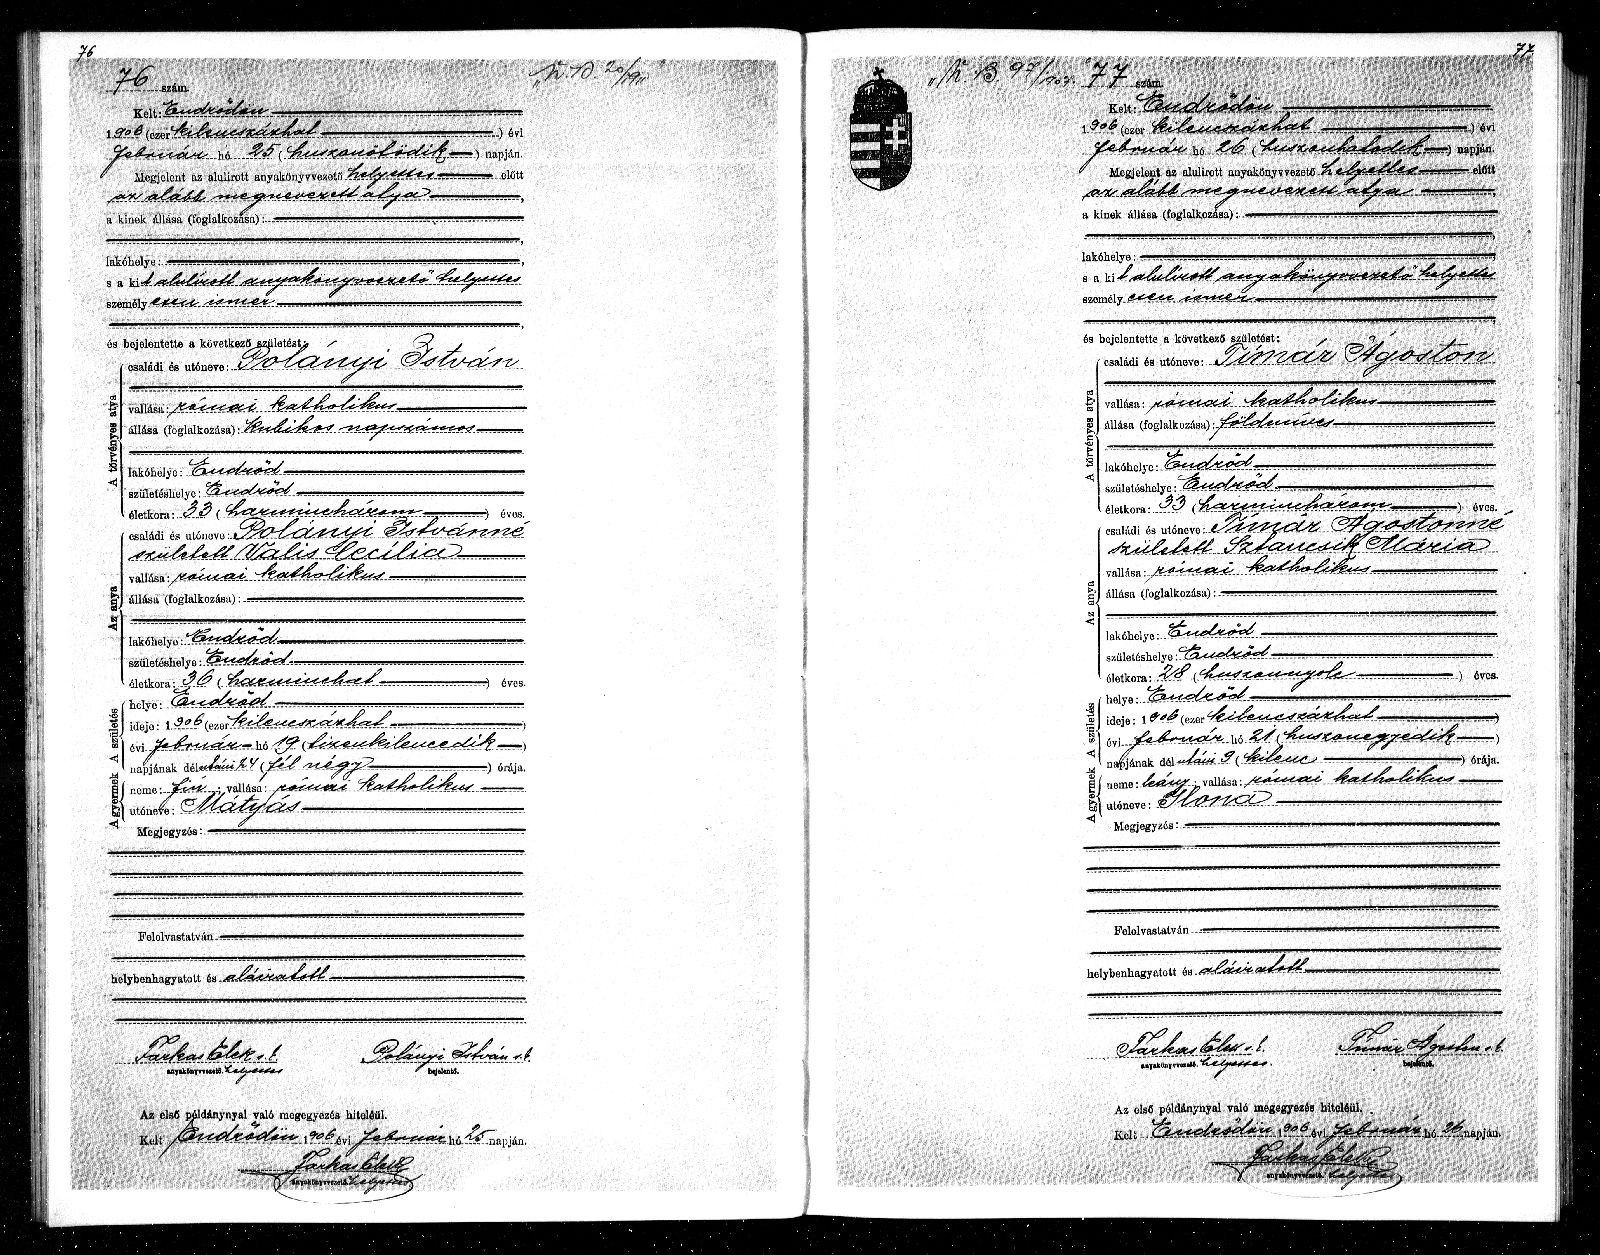 76
76 szám.
Kelt: Endrődön
1906 (ezer kilencszázhat) évi
február hó 25 (huszonötödik) napján.
Megjelent az alulirott anyakönyvvezető helyettes előtt
az alább megnevezett atya,
a kinek állása (foglalkozása):
lakóhelye:
s a kit alulírott anyakönyvvezető helyettes
személyesen ismer
és bejelentette a következő születést:
A törvényes atya
családi és utóneve: Polányi István
vallása: római katholikus
állása (foglalkozása): kubikos napszámos
lakóhelye: Endrőd
születéshelye: Endrőd
életkora: 33 (harminchárom) éves.
Az anya
családi és utóneve: Polányi Istvánné
született Valis Cecília
vallása: római katholikus
állása (foglalkozása):
lakóhelye: Endrőd
születéshelye: Endrőd
életkora: 36 (harminchat) éves.
A születés
helye: Endrőd
ideje: 1906 (ezer kilencszázhat)
évi február hó 19 (tizenkilencedik)
napjának délután (fél négy) órája.
A gyermek
neme: fiú; vallása: római katholikus
utóneve: Mátyás
Megjegyzés:
Felolvastatván
helybenhagyatott és aláiratott
Farkas Elek s. k. Polányi István s. k.
anyakönyvvezető helyettes bejelentő.
Az első példánynyal való megegyezés hiteléül.
Kelt Endrődön 1906 évi február hó 25 napján.
Farkas Elek
anyakönyvvezető helyettes
77
77 szám.
Kelt: Endrődön
1906 (ezer kilencszázhat) évi
február hó 26 (huszonhatodik) napján.
Megjelent az alulirott anyakönyvvezető helyettes előtt
az alább megnevezett atya,
a kinek állása (foglalkozása):
lakóhelye:
s a kit alulírott anyakönyvvezető helyettes
személyesen ismer
és bejelentette a következő születést:
A törvényes atya
családi és utóneve: Tímár Ágoston
vallása: római katholikus
állása (foglalkozása): földmíves
lakóhelye: Endrőd
születéshelye: Endrőd
életkora: 33 (harminchárom) éves.
Az anya
családi és utóneve: Tímár Ágostonné
született Sztancsik Mária
vallása: római katholikus
állása (foglalkozása):
lakóhelye: Endrőd
születéshelye: Endrőd
életkora: 28 (huszonnyolc) éves.
A születés
helye: Endrőd
ideje: 1906 (ezer kilencszázhat)
évi február hó 21 (huszonegyedik)
napjának délután 9 (kilenc) órája.
A gyermek
neme: leány; vallása: római katholikus
utóneve: Ilona
Megjegyzés:
Felolvastatván
helybenhagyatott és aláiratott
Farkas Elek s. k. Tímár Ágoston s. k.
anyakönyvvezető helyettes. bejelentő.
Az első példánynyal való megegyezés hiteléül.
Kelt Endrődön 1906 évi február hó 26 napján.
Farkas Elek
anyakönyvvezető helyettes